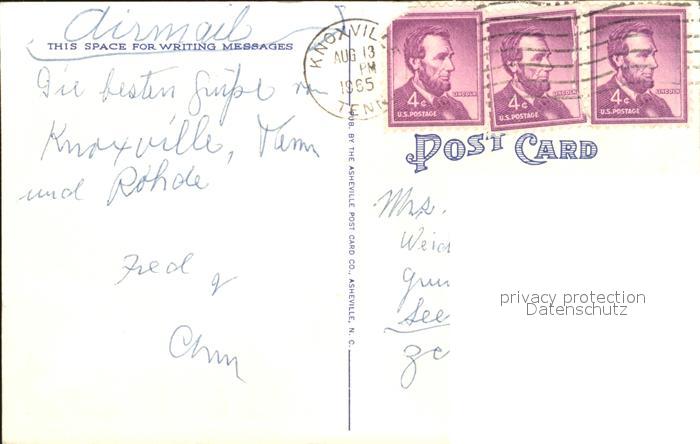 Airmail
THIS SPACE FOR WRITING MESSAGES
Die besten Grüße von
Knoxville, Tenn
und Rohde
Fred
KNOXVILLE
AUG 13
PM
1965
TENN
4¢
LINCOLN
U.S. POSTAGE
4¢
LINCOLN
U.S. POSTAGE
4¢
LINCOLN
U.S. POSTAGE
PUB. BY THE ASHEVILLE POST CARD CO., ASHEVILLE, N. C.
POST CARD
Mrs.
See
privacy protection
Datenschutz